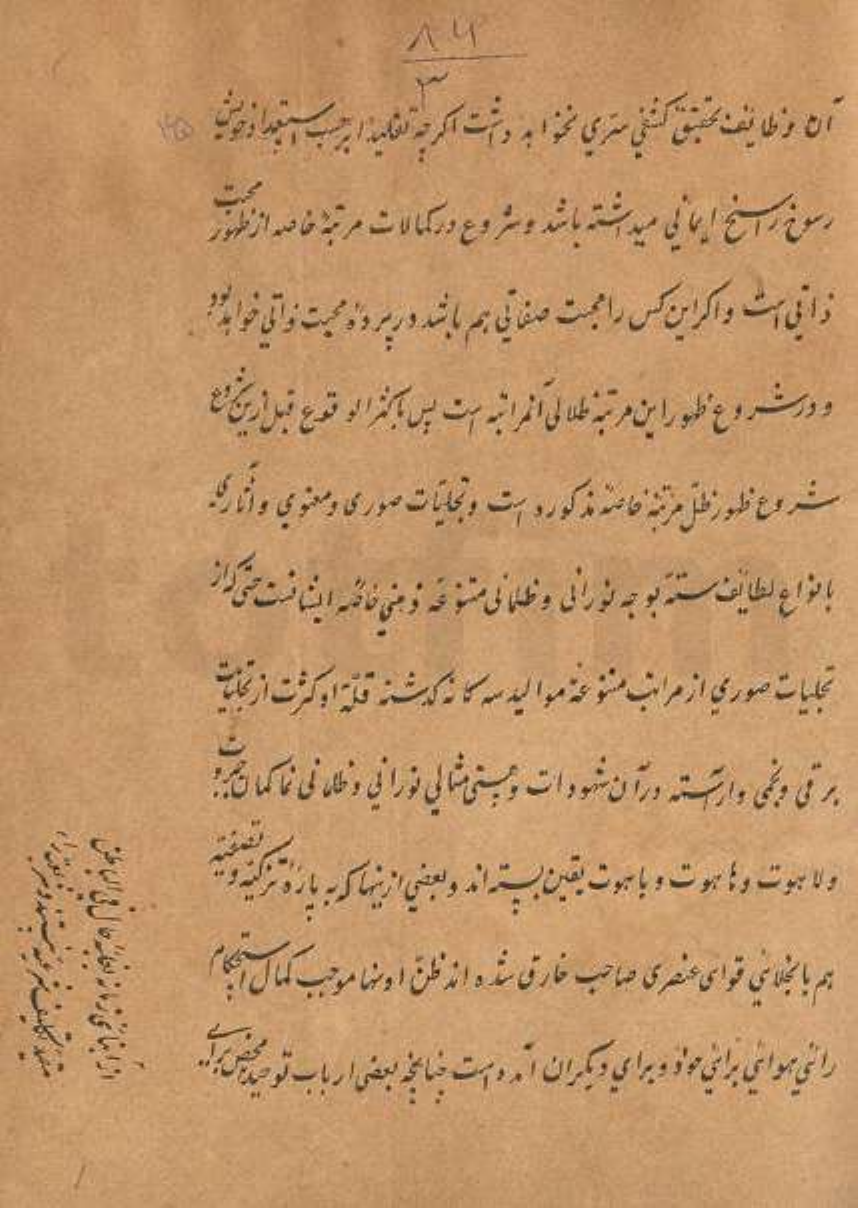 ۸۴
۳
آن وظایف تحقیق کشفی سری نخواهد داشت اکرچه تقلیدا برحسب استعداد خویش
رسوخ راسخ ایمانی میداشته باشد و شروع در کمالات مرتبهٔ خاصه از ظهور محبت
ذاتی است و اکر این کس را محبت صفاتی هم باشد در پردهٔ محبت ذاتی خواهد بود
و در شروع ظهور این مرتبهٔ ظلالی آنمراتبه است پس باکثر الوقوع قبل ازین شروع
شروع ظهور ظلّ مرتبهٔ خاصهٔ مذکوره است و تجلیّات صوری و معنوی و آثاری
بانواع لطایف ستهٔ بوجه نورانی و ظلمانی متنوعهٔ ذهنی خاصّه ایشانست حتی که از
تجلیات صوری از مراتب متنوعهٔ موالید سه کانه کذشته قلّة او کثرت از تجلیات
برقی و نجمی وارسته در آن شهودات و هستی مثالی نورانی و ظلمانی نما کمان جبروت
و لاهوت و هاهوت و باهوت یقین بسته اند و بعضی ازینها که به پارهٔ تزکیه و تصفیه
هم بانجلائی قوای عنصری صاحب خارق شده اند ظنّ اونها موجب کمال استحکام
رائی هوائی برائی خود و برای دیکران آمده است چنانچه بعضی ارباب توحید محض برای